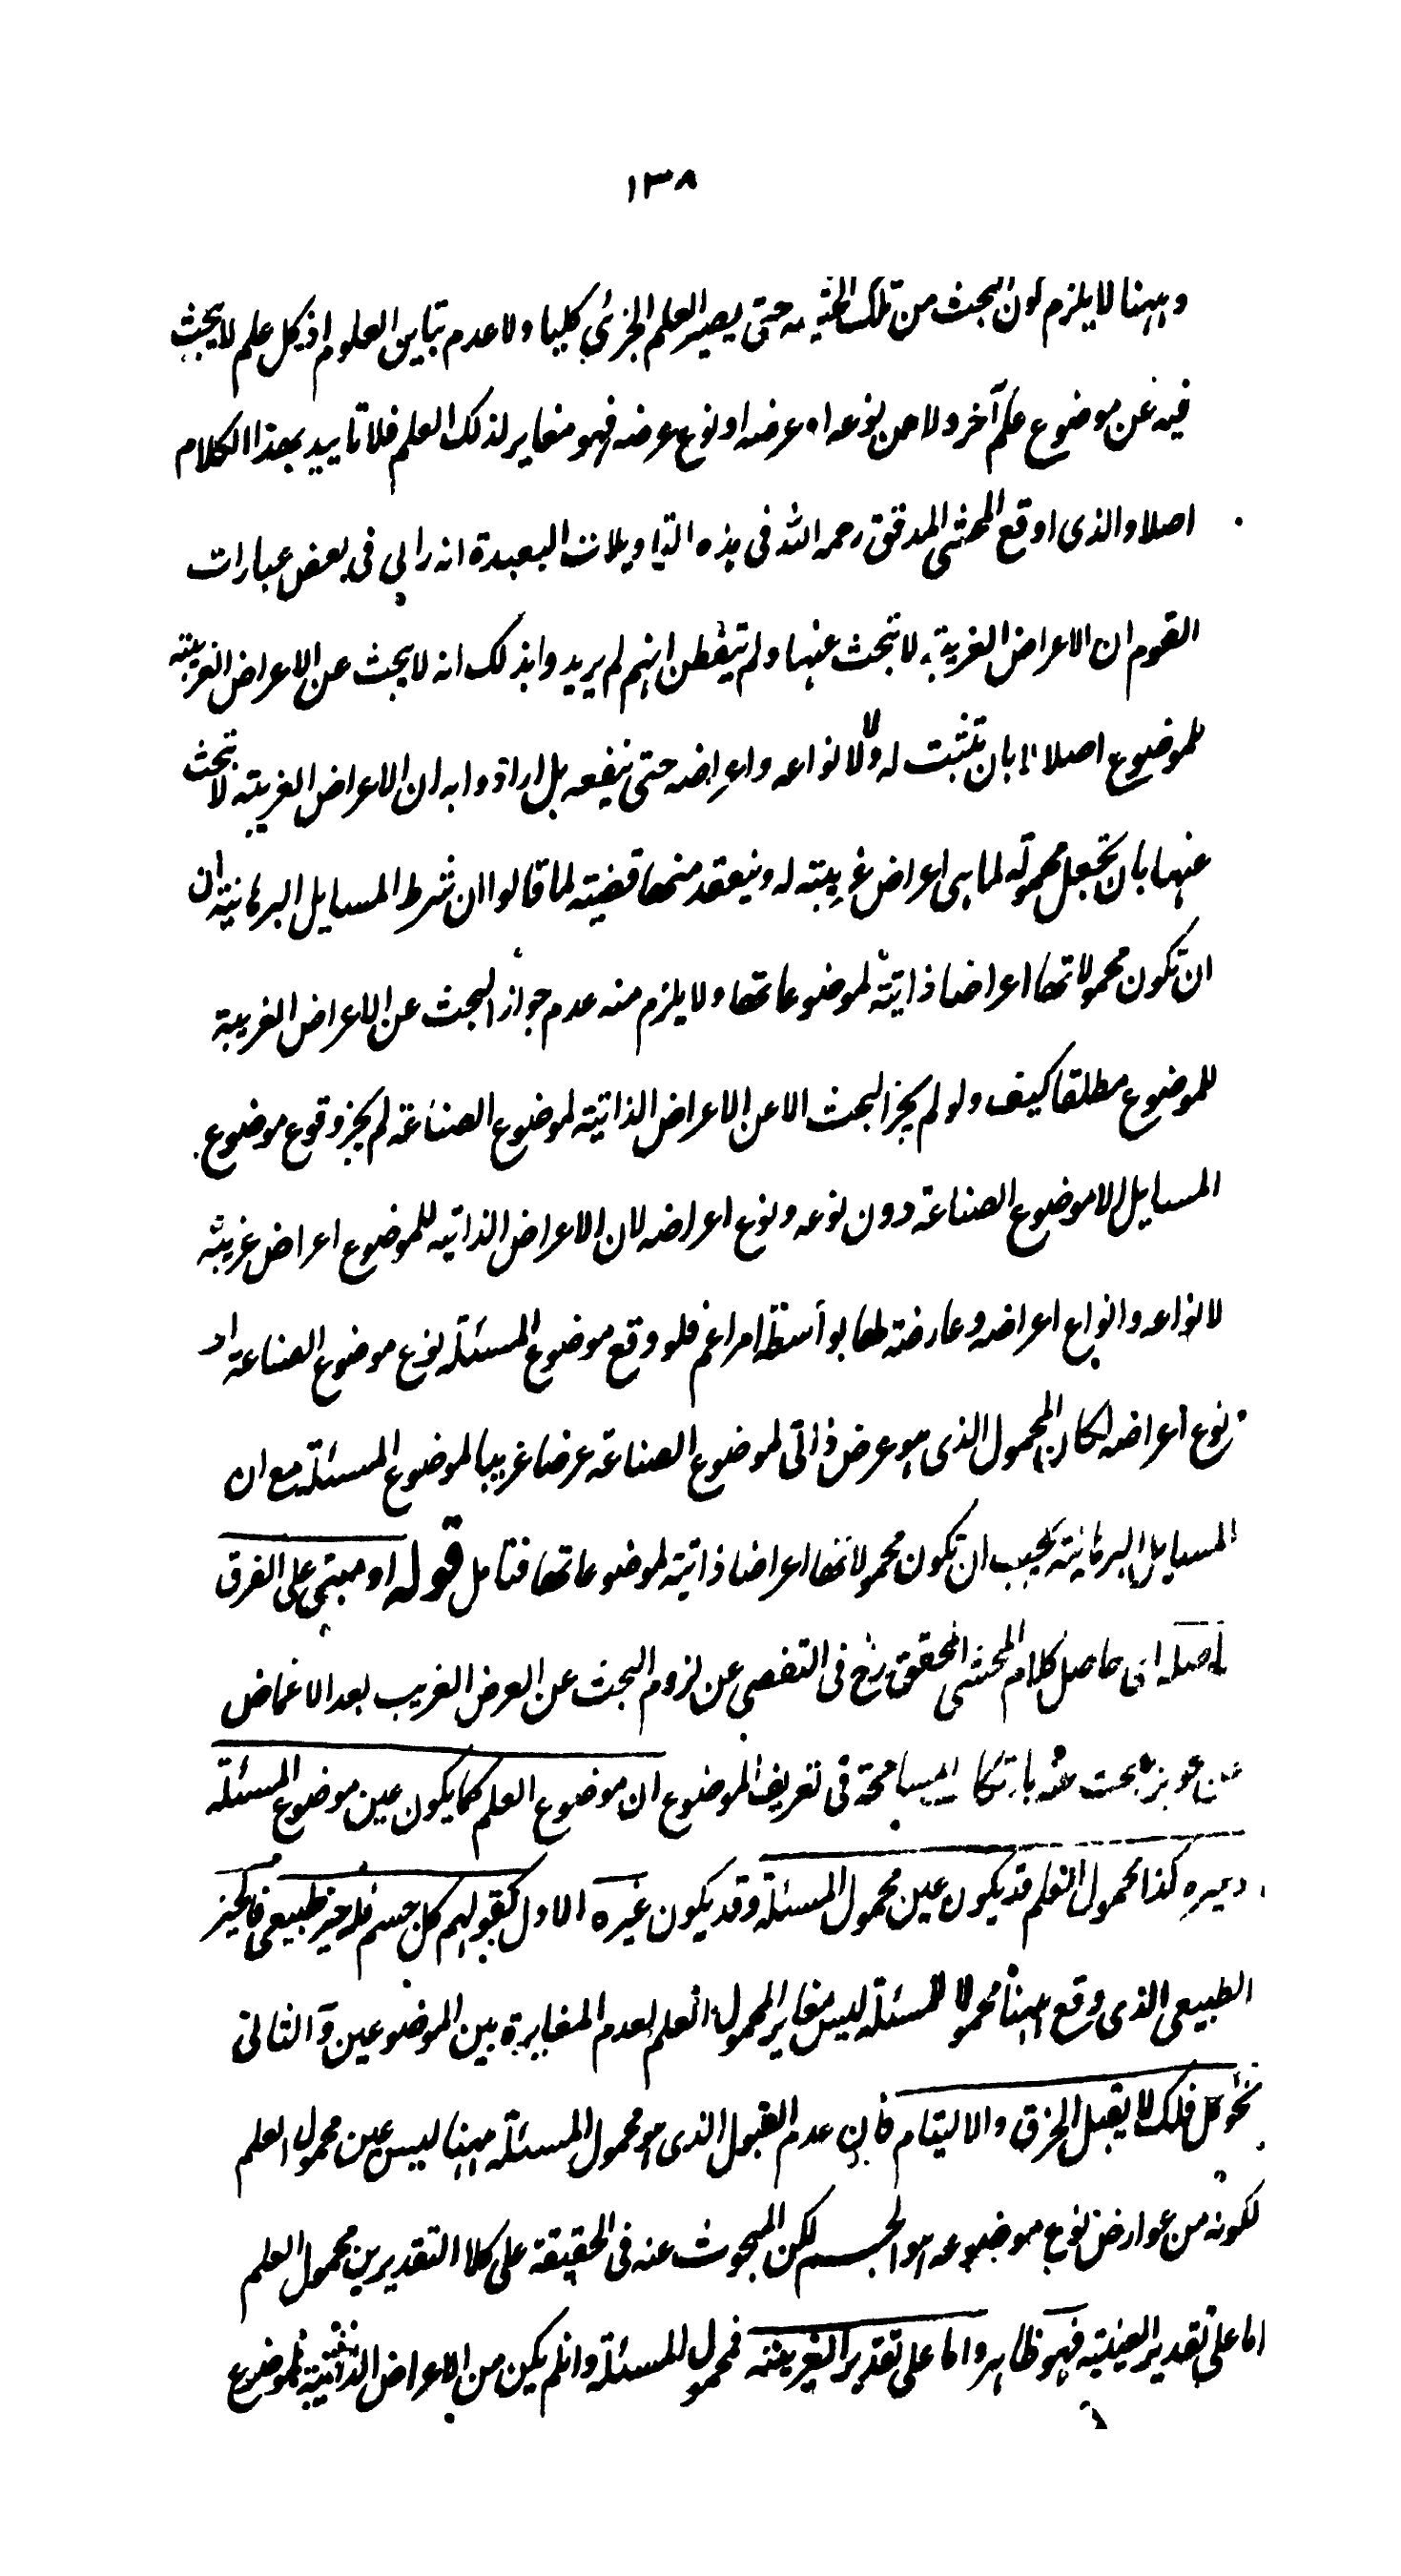 ١٣٨
وههنا لا يلزم كون البحث من تلك الحيثية حتى يصير العلم الجزئي كليا ولا عدم تباين العلوم اذ كل علم لا يبحث
فيه عن موضوع علم آخر ولا عن نوعه او عرضه او نوع عرضه فهو مغاير لذلك العلم فلا تاييد بهذا الكلام
اصلا والذى اوقع المحشى المدقق رحمه الله فى هذه التاويلات البعيدة انه راى فى بعض عبارات
القوم ان الاعراض الغريبة لا تبحث عنها ولم يتفطن انهم لم يريدوا بذلك انه لا يبحث عن الاعراض الغريبة
للموضوع اصلا لا بان تثبت له ولا لانواعه واعراضه حتى ينفعه بل ارادوا به ان الاعراض الغريبة لا تبحث
عنها بان تجعل محمولة لما هى اعراض غريبة له وينعقد منها قضية لما قالوا ان شرط المسايل البرهانية ان
ان تكون محمولاتها اعراضا ذاتية لموضوعاتها ولا يلزم منه عدم جواز البحث عن الاعراض الغريبة
للموضوع مطلقا كيف ولو لم يجز البحث الا عن الاعراض الذاتية لموضوع الصناعة لم يجز وقوع موضوع
المسايل الا موضوع الصناعة دون نوعه ونوع اعراضه لان الاعراض الذاتية للموضوع اعراض غريبة
لانواعه وانواع اعراضه وعارضة لها بواسطة امر اعم فلو وقع موضوع المسئلة نوع موضوع الصناعة او
نوع اعراضه لكان المحمول الذى هو عرض ذاتى لموضوع الصناعة عرضا غريبا لموضوع المسئلة مع ان
المسايل البرهانية يجب ان تكون محمولاتها اعراضا ذاتية لموضوعاتها فتامل قوله او مبتنى على الفرق
حاصله اى حاصل كلام المحشى المحقق رح فى التفصى عن لزوم البحث عن العرض الغريب بعد الاغماض
عن البحث عنه بارتكاب المسامحة فى تعريف الموضوع ان موضوع العلم كما يكون عين موضوع المسئلة
وغيره كذا محمول العلم قد يكون عين محمول المسئلة وقد يكون غيره الاول كقولهم كل جسم فله حيز طبيعى فالحيز
الطبيعى الذى وقع ههنا محمولا للمسئلة ليس مغاير المحمول العلم لعدم المغايرة بين الموضوعين والثانى
نحو كل فلك لا يقبل الخرق والالتيام فان عدم القبول الذى هو محمول المسئلة ههنا ليس عين محمول العلم
لكونه من عوارض نوع موضوعه هو الجسم لكن المبحوث عنه فى الحقيقة على كلا التقديرين محمول العلم
اما على تقدير العينية فهو ظاهر واما على تقدير الغيرية فمحمول المسئلة وان لم يكن من الاعراض الذاتية لموضوع